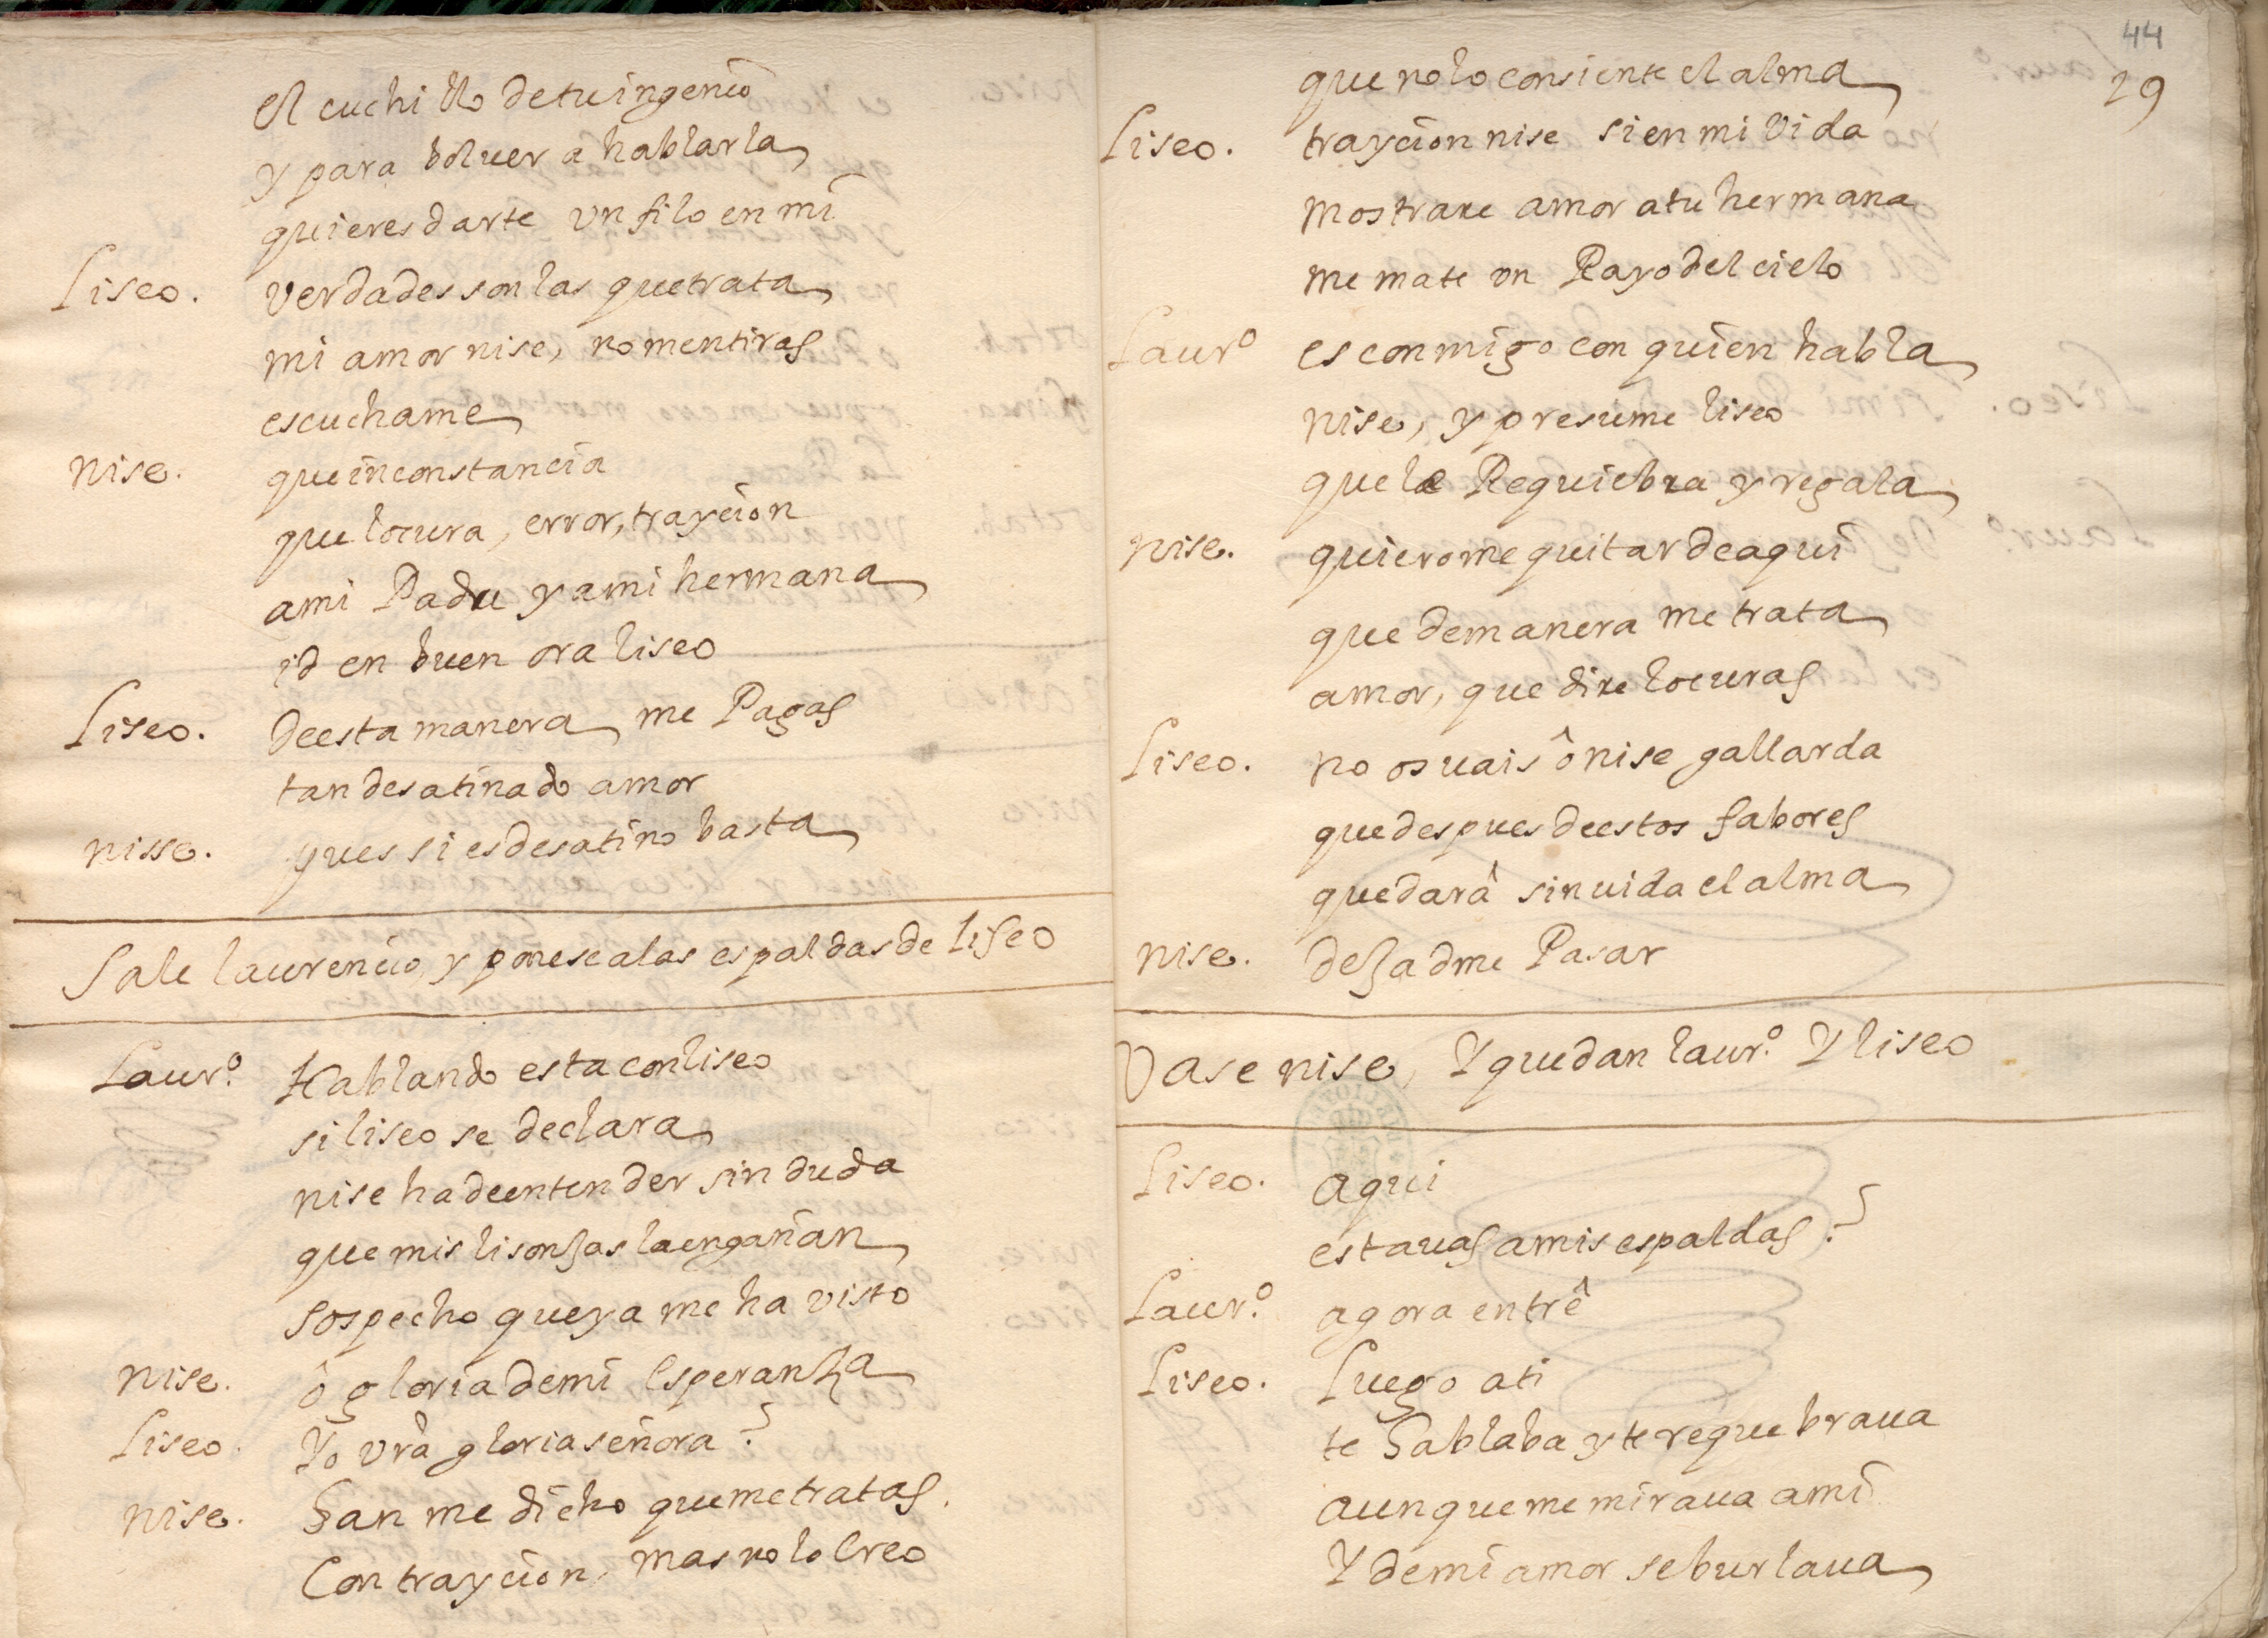 el cuchillo de tu ingenio
y para boluer a hablarla
quieres darte vn filo en mi
Liseo. verdades son las que trata
mi amor nise, no mentiras
escuchame
nise. que inconstancia
que locura, error, traycion
a mi Padre y a mi hermana
id en buen ora liseo
Liseo. de esta manera me Pagas
tan desatinado amor
nisse. pues si es desatino basta
Sale laurencio, y ponese a las espaldas de liseo
Laurº. Hablando esta con liseo
si liseo se declara
nise ha de entender sin duda
que mis lisonjas la engañan
sospecho que ya me ha visto
nise. ô gloria de mi esperanza
Liseo. Yo vrâ gloria señora?
nise. han me dicho que me tratas.
Con traycion, mas no lo Creo
44
29
que no lo consiente el alma
Liseo. traycion nise si en mi vida
mostrare amor a tu hermana
me mate vn Rayo del cielo
Laurº es conmigo con quien habla
nise, y presume liseo
que le Requiebra y regala
nise. quierome quitar de aqui
que de manera me trata
amor, que dire locuras
Liseo. no os vais ô nise gallarda
que despues de estos fabores
quedarâ sin uida el alma
nise. dejadme Pasar
Vase nise, Y quedan laurº. Y liseo
Liseo. aqui
estauas a mis espaldas?
Laurº. agora entrê
Liseo. Luego a ti
te hablaba y te requebraua
aunque me miraua a mi
Y de mi amor se burlaua